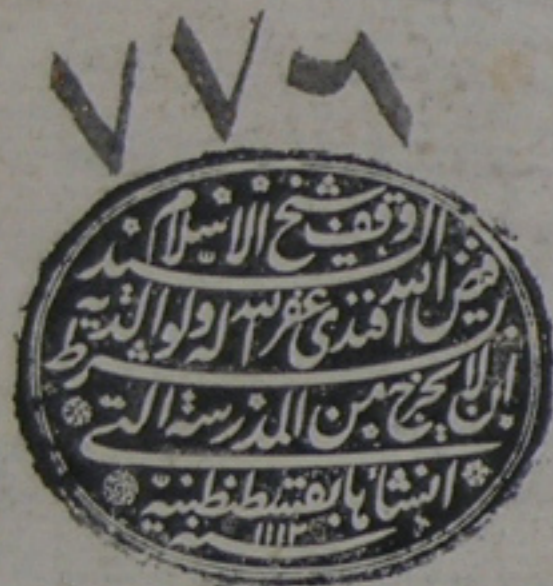 ٧٧٦
وقف شيخ الاسلام السيد
فيض الله افندى غفر الله له ولوالديه
بشرط ان لا يخرج من المدرسة التى
انشأها بقسطنطنية
سنه ١١١٢